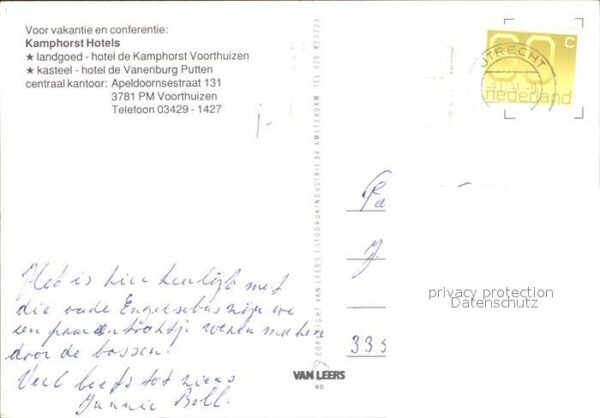 Voor vakantie en conferentie:
Kamphorst Hotels
★ landgoed - hotel de Kamphorst Voorthuizen
★ kasteel - hotel de Vanenburg Putten
centraal kantoor: Apeldoornsestraat 131
3781 PM Voorthuizen
Telefoon 03429 - 1427
UTRECHT
60 c
nederland
COPYRIGHT VAN LEERS FOTODRUKINDUSTRIE BV AMSTERDAM, TEL. 020
335
privacy protection
Datenschutz
Het is hier heerlijk met
die oude Engelse bus zijn we
een maken
door de bossen.
Veel liefs tot ziens
Boll.
VAN LEERS
90